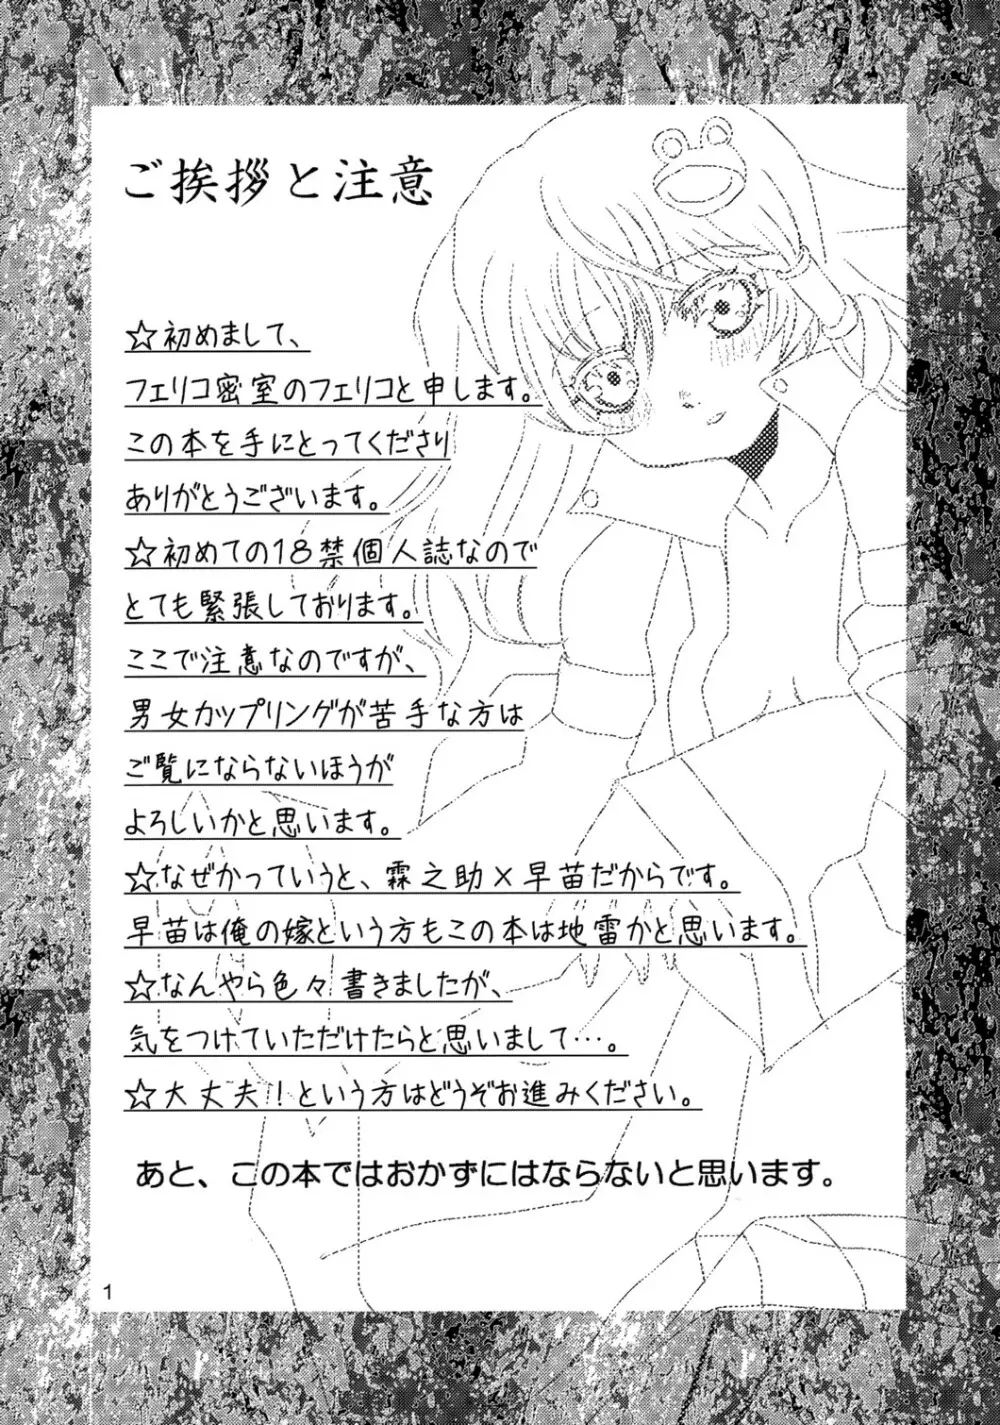 ご挨拶と注意
☆初めまして、
フェリコ密室のフェリコと申します。
この本を手にとってくださり
ありがとうございます。
☆初めての18禁個人誌なので
とても緊張しております。
ここで注意なのですが、
男女カップリングが苦手な方は
ご覧にならないほうが
よろしいかと思います。
☆なぜかっていうと、霖之助×早苗だからです。
早苗は俺の嫁という方もこの本は地雷かと思います。
☆なんやら色々書きましたが、
気をつけていただけたらと思いまして…。
☆大丈夫！という方はどうぞお進みください。
あと、この本ではおかずにはならないと思います。
1